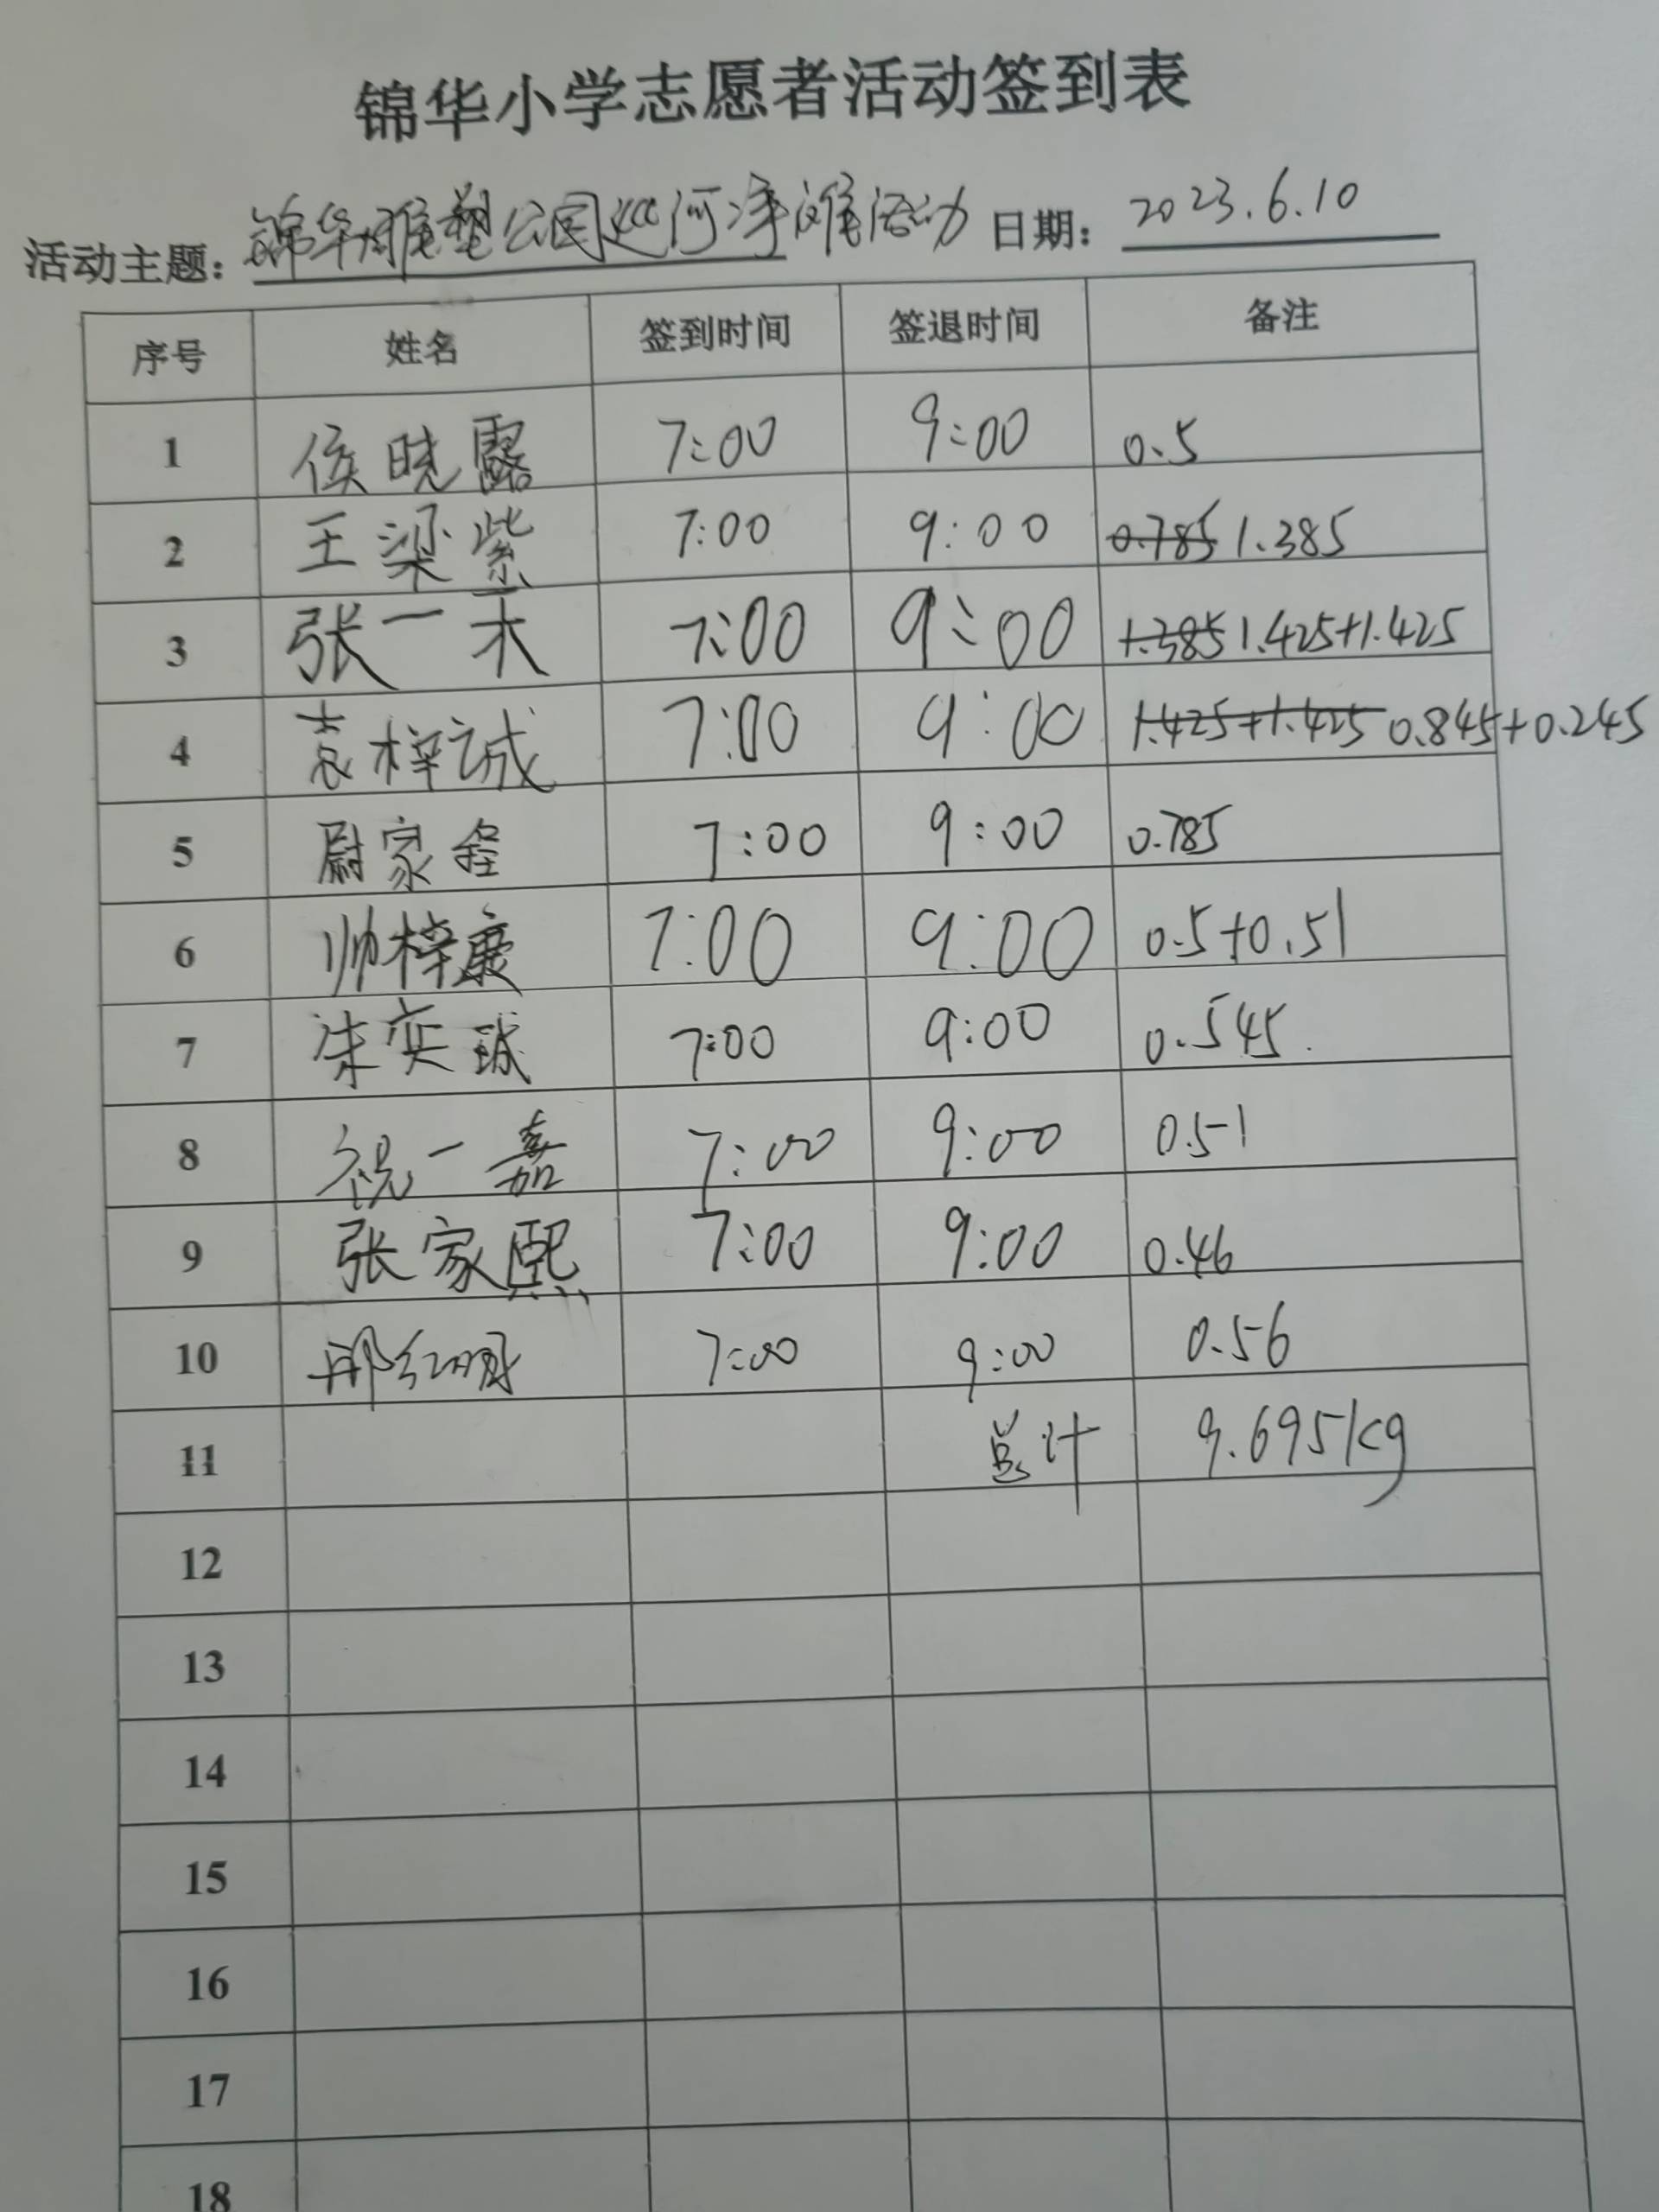 锦华小学志愿者活动签到表
活动主题: 锦华雕塑公园巡河净滩活动 日期: 2023.6.10
序号 姓名 签到时间 签退时间 备注
1 侯晓露 7:00 9:00 0.5
2 王梁紫 7:00 9:00 0.785 1.385
3 张一禾 7:00 9:00 1.385 1.425+1.425
4 袁梓诚 7:00 9:00 1.425+1.425 0.845+0.245
5 尉家 7:00 9:00 0.785
6 帅梓康 7:00 9:00 0.5+0.51
7 7:00 9:00 0.545
8 祝一嘉 7:00 9:00 0.51
9 张家熙 7:00 9:00 0.46
10 7:00 9:00 0.56
11 总计 9.695kg
12
13
14
15
16
17
18